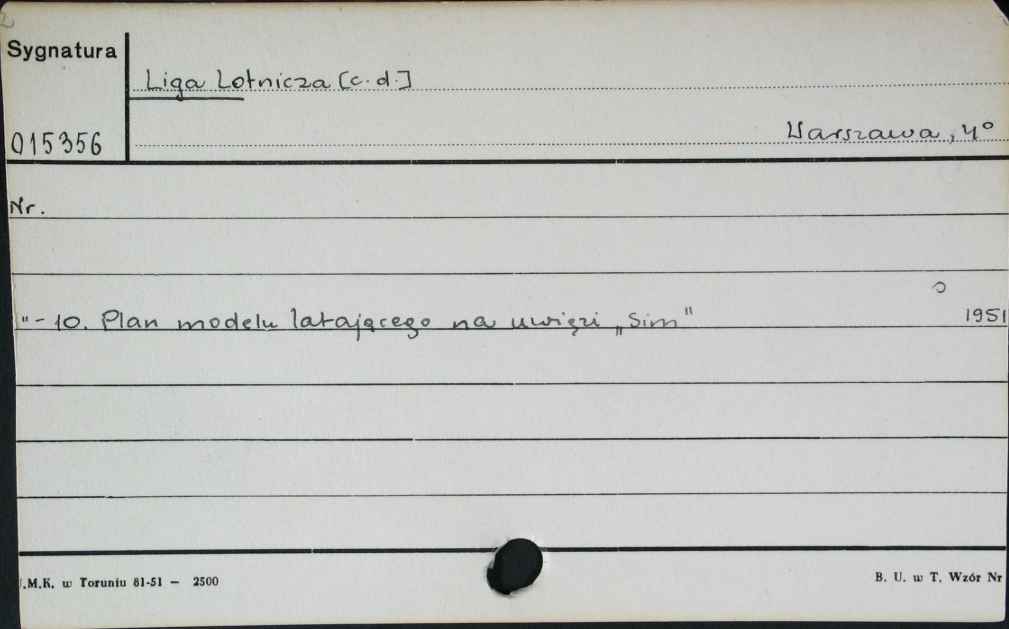 2
Sygnatura
Liga Lotnicza [c.d.]
015356
Warszawa, 4°
Nr.
"- 10. Plan modelu latającego na uwięzi „Sim" 1951
.M.K. w Toruniu 81-51 — 2500
B. U. w T. Wzór Nr